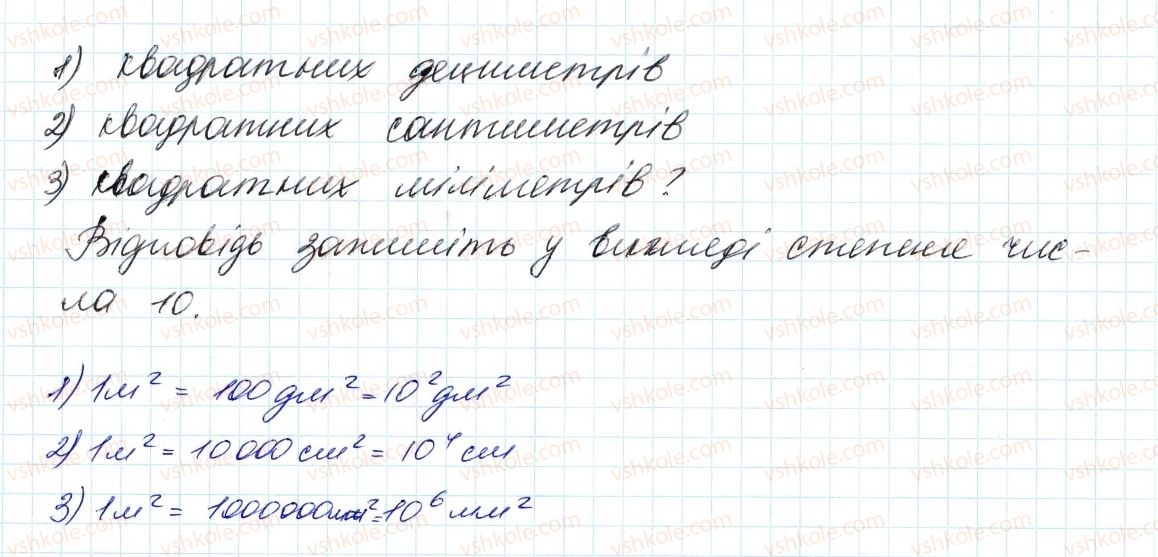 1) квадратних дециметрів
2) квадратних сантиметрів
3) квадратних міліметрів?
Відповідь запишіть у вигляді степеня чис-
ла 10.
1) 1м² = 100 дм² = 10² дм²
2) 1м² = 10 000 см² = 10⁴ см
3) 1м² = 1000000мм² = 10⁶ мм²